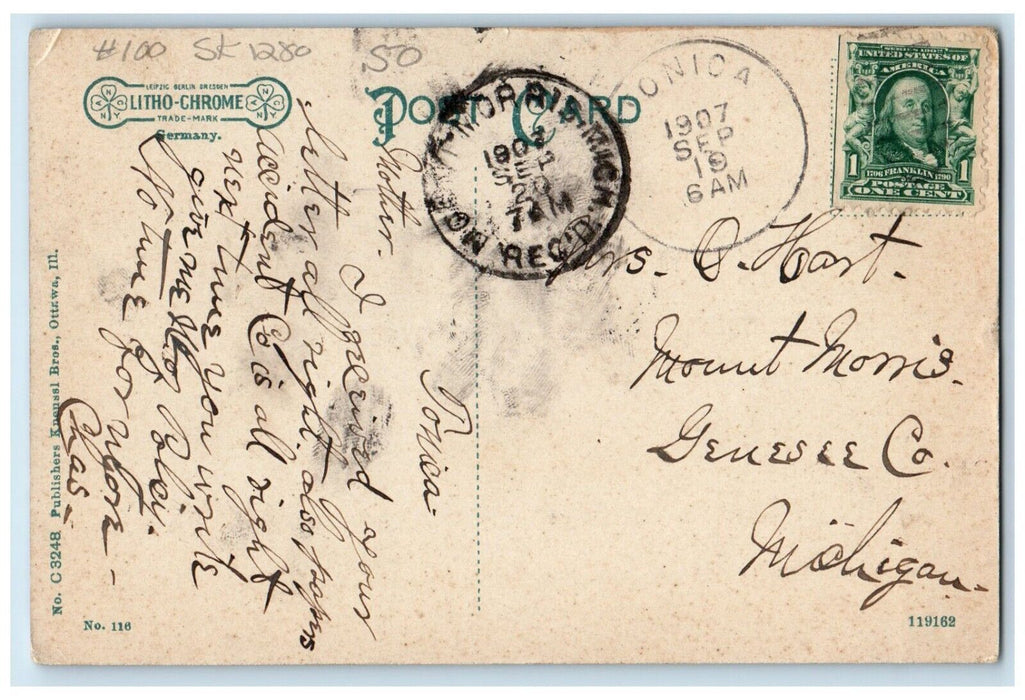 #100 St 1280 50
LEIPZIG BERLIN DRESDEN
LITHO-CHROME
TRADE-MARK
Germany.
POST CARD
MOUNT MORRIS, MICH.
SEP
20
7 AM
REC'D.
TONICA
1907
SEP
19
6 AM
SERIES 1902
UNITED STATES OF
AMERICA
1706 FRANKLIN 1790
POSTAGE
1 ONE CENT 1
Tonica
Mother. I received your
letter all right. also papers
accident Co is all right
next time you write
give me the Policy.
No time for more –
Chas –
Mrs. O. Hart.
Mount Morris.
Genesee Co.
Michigan.
No. C 3248 Publishers Knenssl Bros., Ottawa, Ill.
No. 116
119162